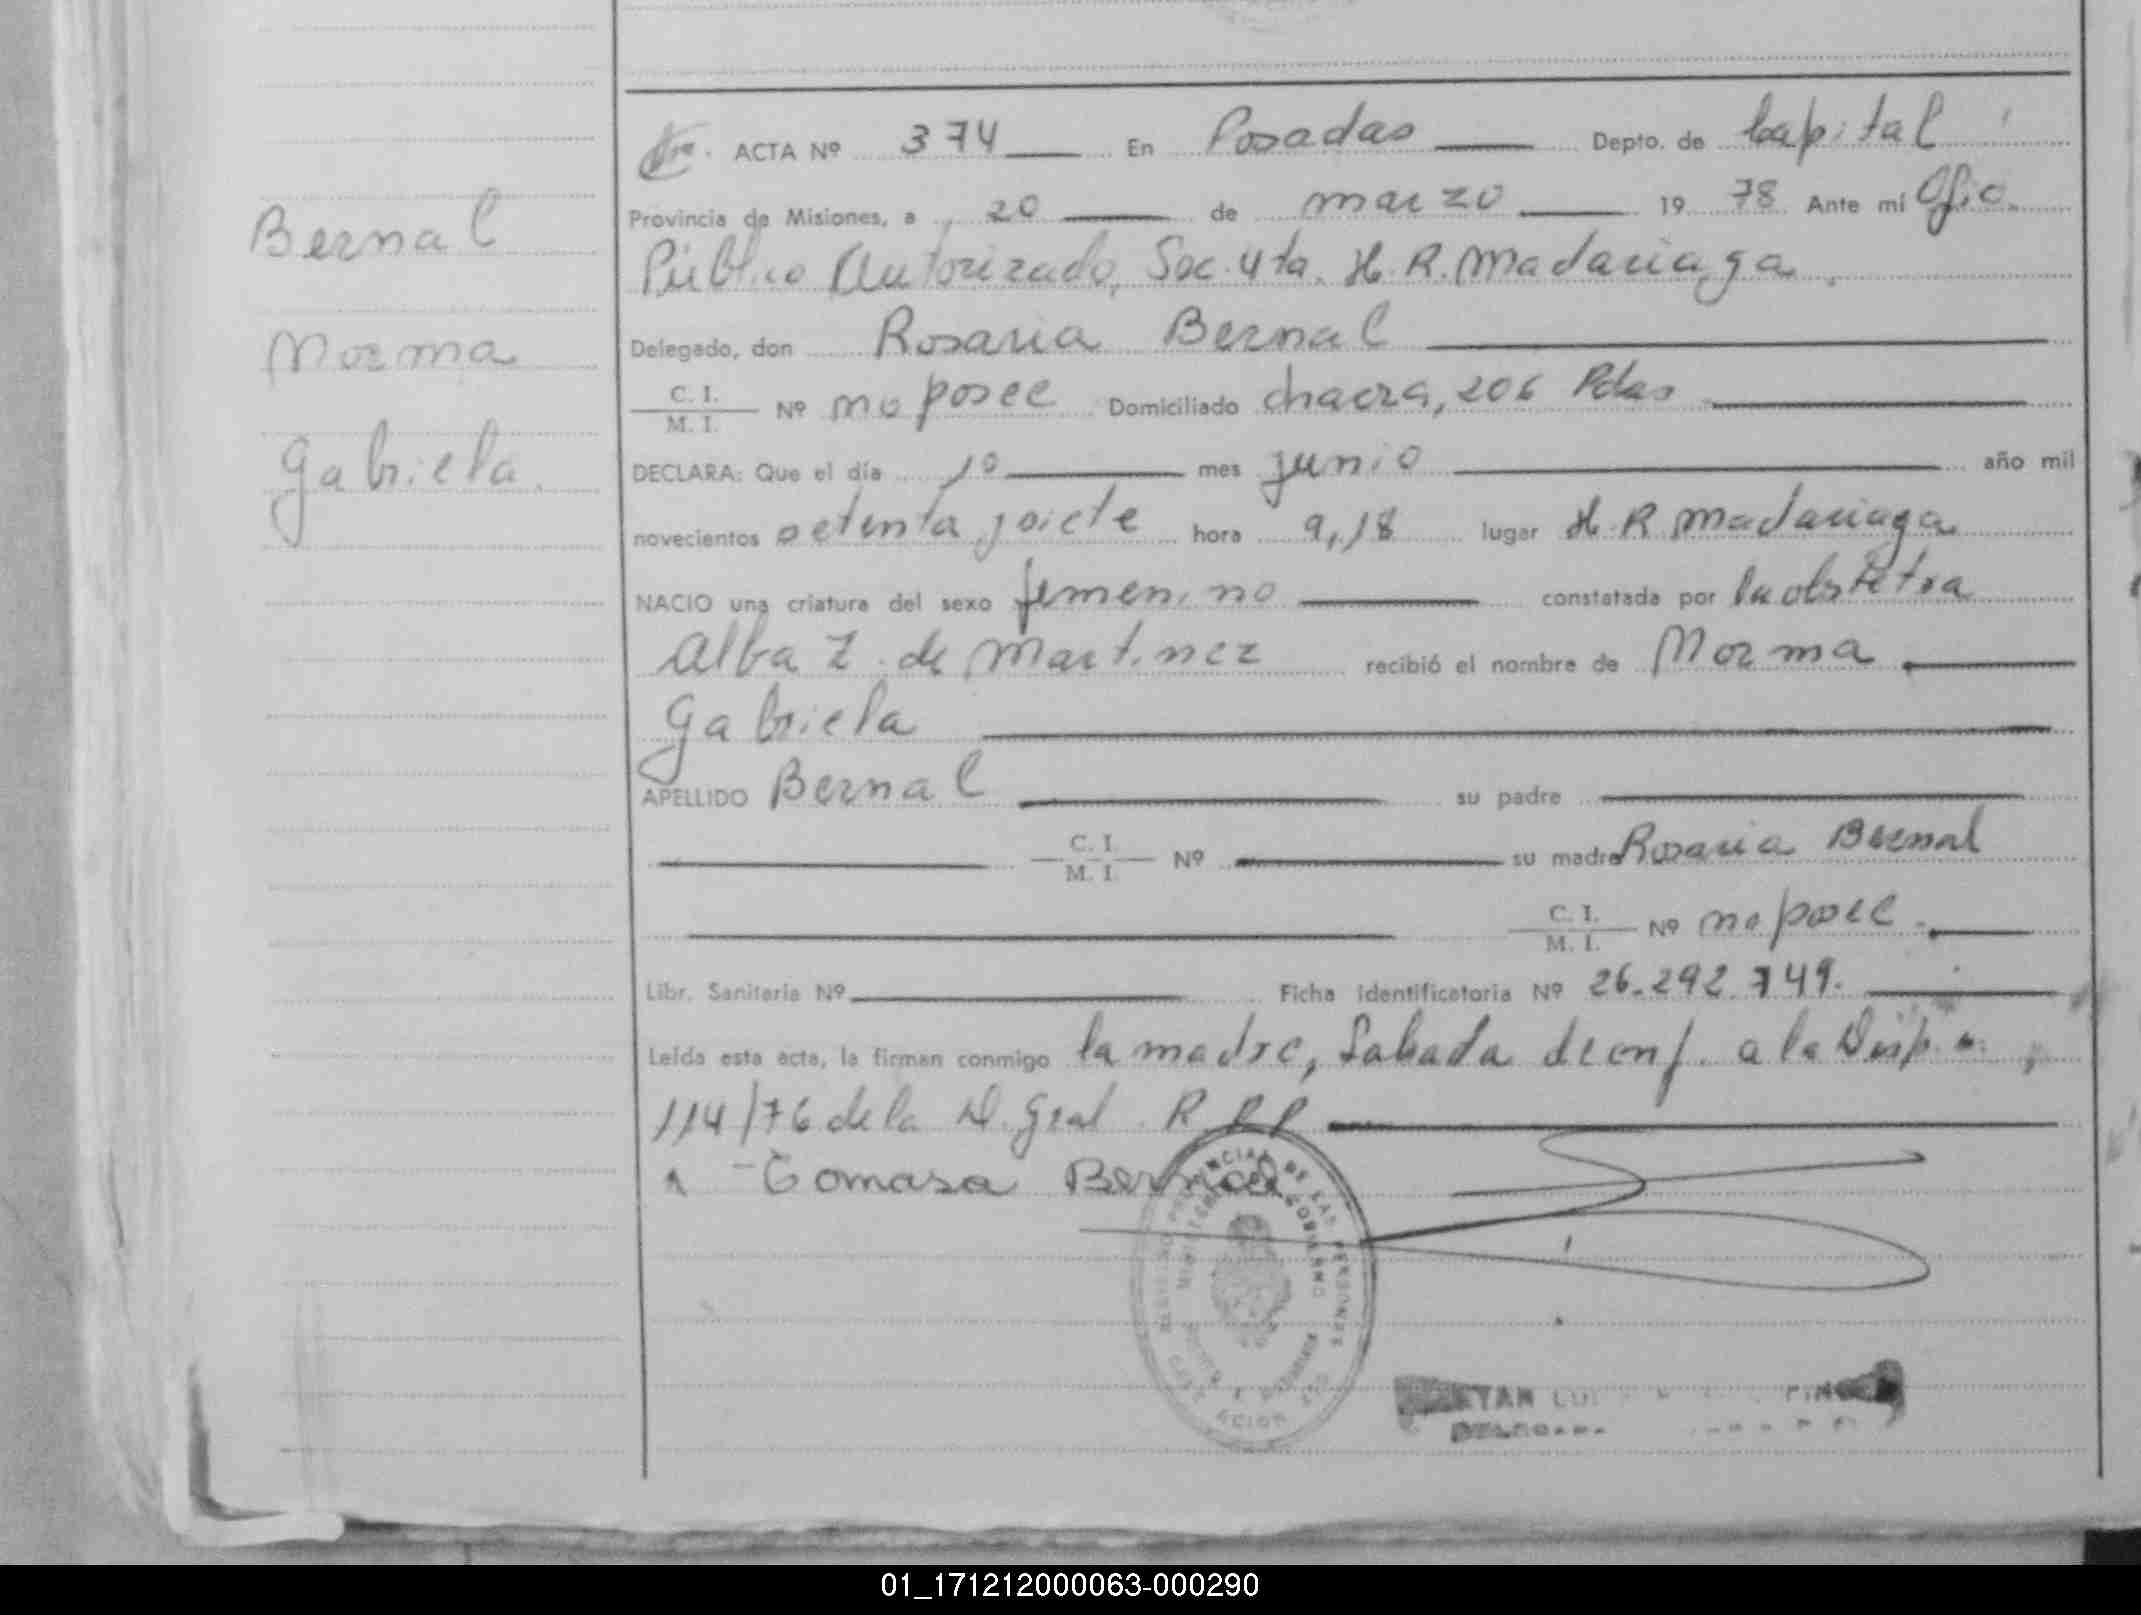 Bernal
Norma
Gabriela.
ACTA Nº 374 En Posadas Depto. de Capital
Provincia de Misiones, a 20 de marzo 19 78 Ante mi Ofic.
Público Autorizado, Secc. 4ta. H. R. Madariaga
Delegado, don Rosaria Bernal
C. I.
M. I. Nº no posee Domiciliado chacra, 206 Pdas
DECLARA: Que el día 10 mes junio año mil
novecientos setenta y siete hora 9,18 lugar H. R. Madariaga
NACIO una criatura del sexo femenino constatada por la obstetra
Alba Z. de Martinez recibió el nombre de Norma
Gabriela
APELLIDO Bernal su padre
C. I.
M. I. Nº su madre Rosaria Bernal
C. I.
M. I. Nº no posee.
Libr. Sanitaria Nº Ficha identificatoria Nº 26.292.749.
Leída esta acta, la firman conmigo la madre, Labada de conf. a la Disp.
114/76 de la D. Gral. R. P. P.
Tomasa Bernal
DE LAS PERSONAS
GOBIERNO
01_171212000063-000290